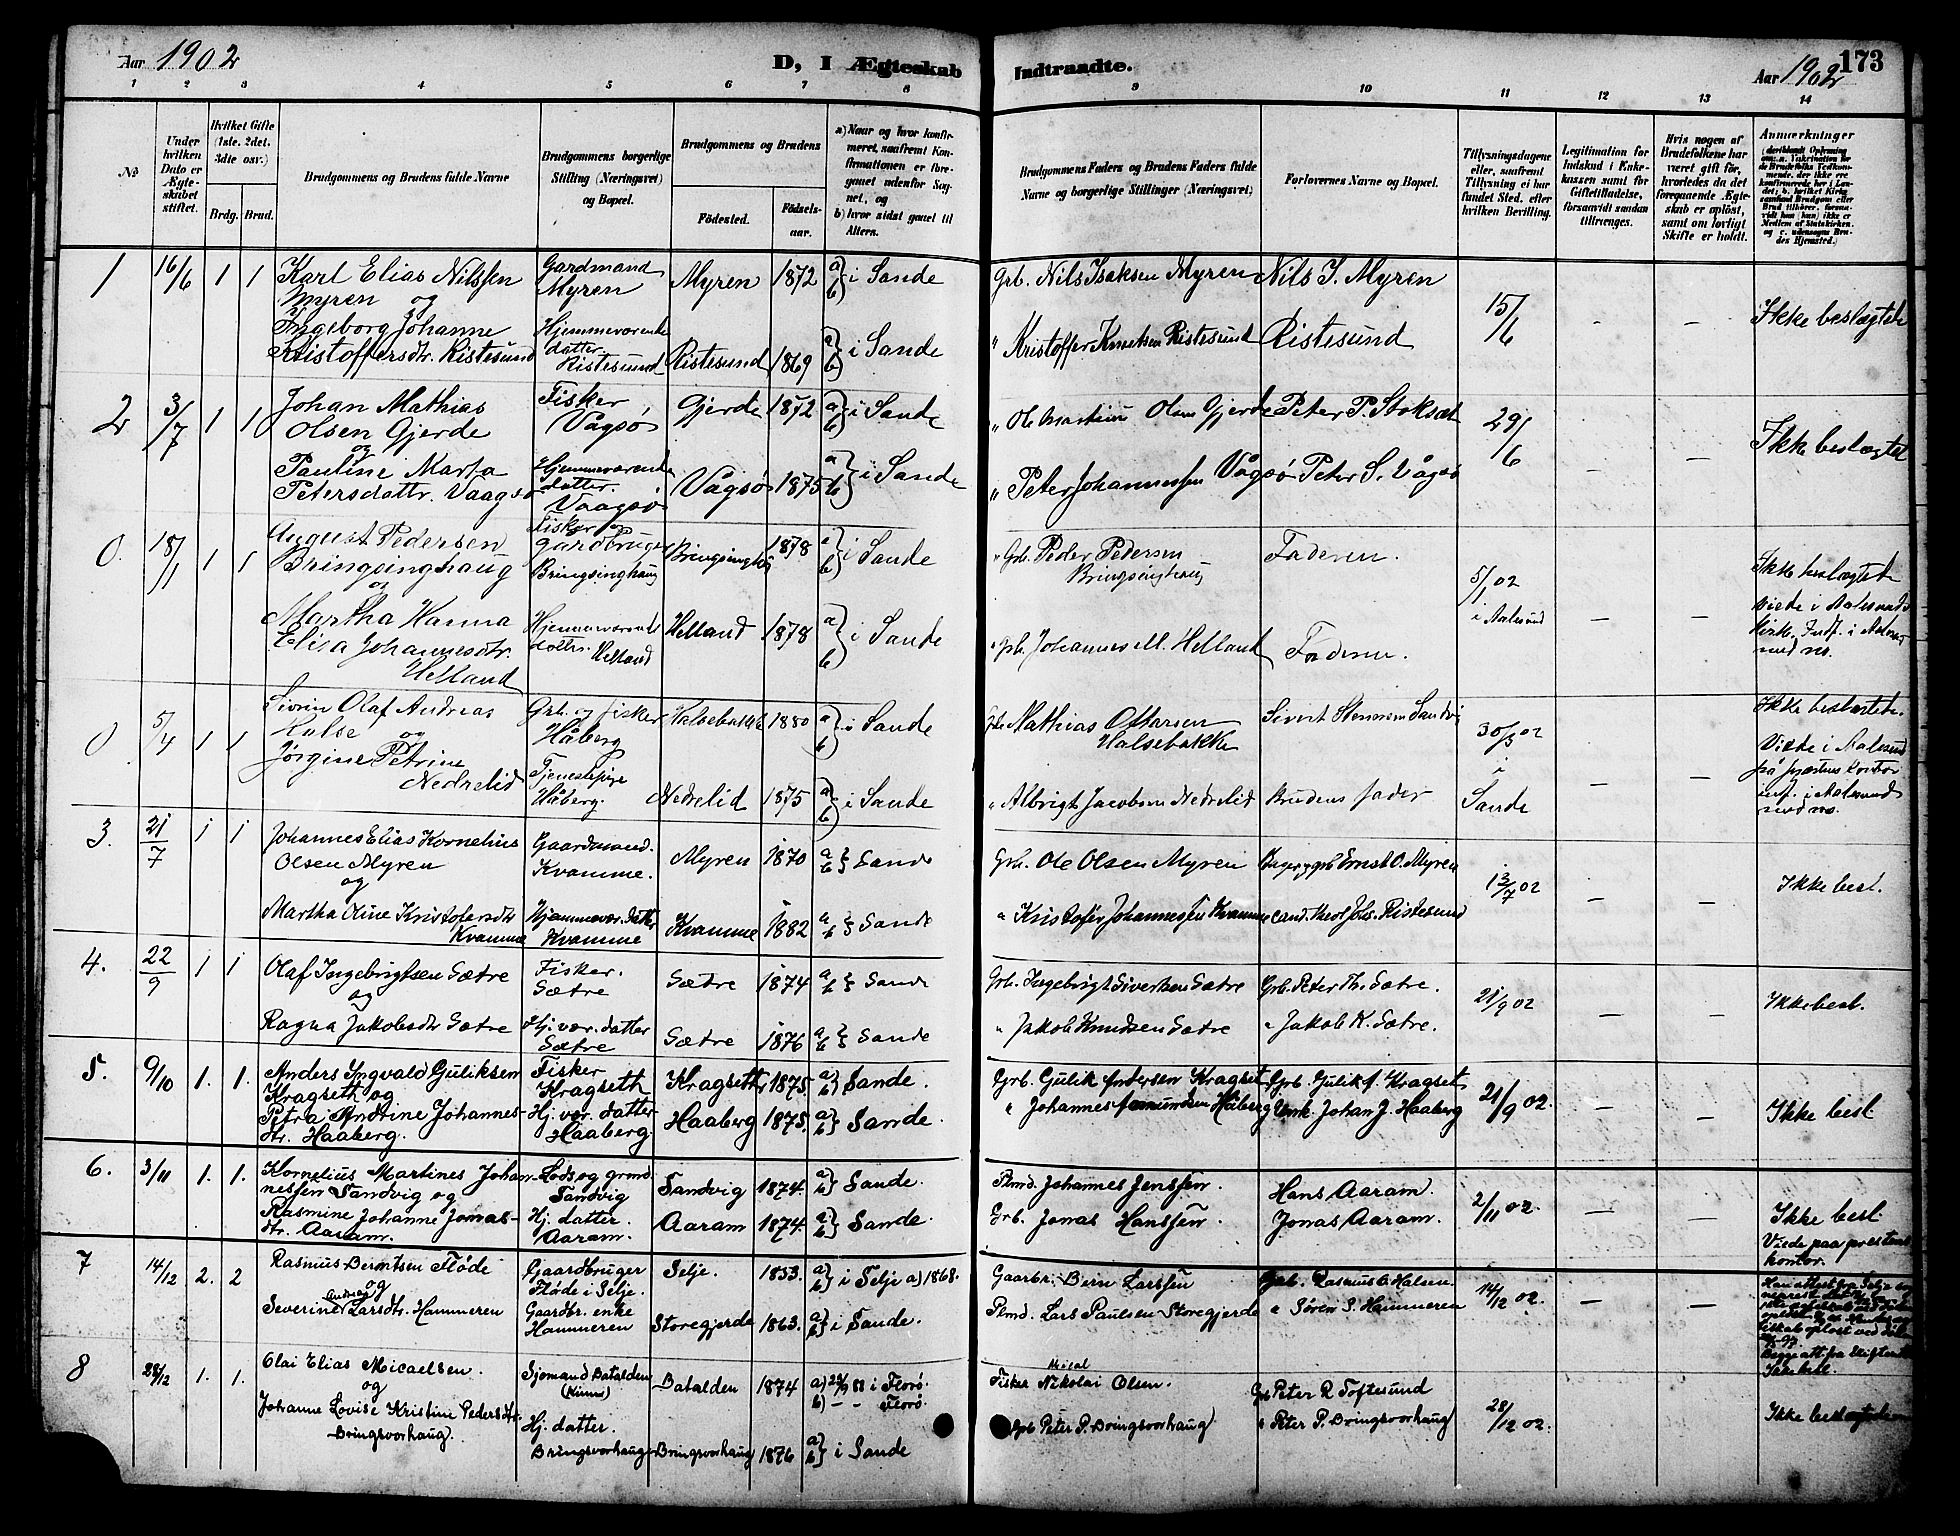 Aar 1902
D, I Ægteskab
Indtraadte.
Aar 1902
173
1 2 3 4 5 6 7 8 9 10 11 12 13 14
No
Under hvilken Dato er Ægteskabet stiftet.
Hvilket Gifte (1ste. 2det. 3dte osv.)
Brdg. Brud.
Brudgommens og Brudens fulde Navne
Brudgommens borgerlige Stilling (Næringsvei) og Bopæl.
Brudgommens og Brudens
Fødested.
Fødselsaar.
a) Naar og hvor konfirmeret, saafremt Konfirmationen er foregaaet udenfor Sognet, og
b) hvor sidst gaaet til Alters.
Brudgommens Faders og Brudens Faders fulde Navne og borgerlige Stillinger (Næringsvei)
Forlovernes Navne og Bopæl.
Tillysningsdagene eller, saafremt Tillysning ei har fundet Sted, efter hvilken Bevilling.
Legitimation for Indskud i Enkekassen samt for Giftetilladelse, forsaavidt saadan tiltrænges.
Hvis nogen af Brudefolkene har været gift før, hvorledes da det foregaaende Ægteskab er opløst, samt om lovligt Skifte er holdt.
Anmærkninger
1 16/6 1 1 Karl Elias Nilssen Gardmand Myren 1872 a) b) i Sande Grb. Nils Isaksen Myren Nils I. Myren 15/6 - - Ikke beslægtede
Myren og Myren
Ingeborg Johanne Hjemmeværende
Kristoffersdtr. Ristesund datter Ristesund Ristesund 1869 a) b) i Sande " Kristoffer Knutsen Ristesund Ristesund
2 3/7 1 1 Johan Mathias Fisker, Gjerde 1872 a) b) i Sande " Ole Martin Olsen Gjerde Peter P. Stokset 29/6 - - Ikke beslægtet
Olsen Gjerde Vågsø
og
Pauline Marta Hjemmeværende
Petersdattr. Vaagsø datter. Vaagsø Vågsø 1875 a) b) i Sande " Peter Johannessen Vågsø Peter S. Vågsø
0. 18/1 1 1 August Pedersen Fisker og Gardbruger Bringsinghaug 1878 a) b) i Sande " Grb. Peder Pedersen Faderen. 5/1 02 i Aalesund - - Ikke beslægtede
Bringsinghaug Bringsinghaug Bringsinghaug Viede i Aalesunds
og Kirke. Indf. i Aalesund
Martha Hanna Hjemmeværende Helland 1878 a) b) i Sande " Grb. Johannes M. Helland Faderen. med no.
Elisa Johannesdtr. datter. Helland
Helland
0 5/4 1 1 Sivrin Olaf Andreas Grb. og fisker Halsebakke 1880 a) b) i Sande Grb. Mathias Ottarsen Sivert Sandvig 30/3 02 i Sande - - Ikke beslægtede.
Halse og Håberg Halsebakke Viede i Aalesund
Jørgine Petrine Tjenestepige på prestens kontor
Nedrelid Håberg. Nedrelid 1875 a) b) i Sande " Albrigt Jacobsen Nedrelid Brudens fader inf. i Aalesund med no.
3. 21/7 1 1 Johannes Elias Kornelius Gaardmand. Myren 1870 a b } Sande Grb. Ole Olsen Myren Ernst O. Myren 13/7 02 - - Ikke besl.
Olsen Myren Kvamme.
og
Martha Oline Kristofersdtr Hjemmevær. datter Kvamme 1882 a b } Sande " Kristofer Johannessen Kvamme cand. theol. Johs. Ristesund
Kvamme Kvamme
4. 22/9 1 1 Olaf Ingebrigtsen Sætre Fisker. Sætre 1874 a b } Sande Grb. Ingebrigt Sivertsen Sætre Grb. Peter Th. Sætre. 21/9 02 - - Ikke besl.
og Sætre
Ragna Jakobsdtr Sætre Hj. vær. datter Sætre 1876 a b } Sande " Jakob Knudsen Sætre " Jakob K. Sætre.
Sætre
5. 9/10 1. 1. Anders Ingvald Guliksen Fisker Kragseth 1875 a) b) Sande. Grb. Gulik Andersen Kragset Grb. Gulik A. Kragset 21/9 02. - - Ikke besl
Kragseth og Kragseth
Petra Andtine Johannes- Hj. vær. datter Haaberg 1875. a) b) Sande. " Johannes Amundsen Håberg Johan J. Haaberg
dtr. Haaberg. Haaberg.
6. 3/11 1. 1. Kornelius Martines Johan- Lods og grmd. Sandvig 1874. a) b) Sande. Plmd. Johannes Jenssen. Hans Aaram. 2/11 02. - - Ikke besl
nessen Sandvig og Sandvig
Rasmine Johanne Jonas- Hj. datter. Aaram 1874. a) b) Sande. Grb. Jonas Hanssen. Jonas Aaram.
dtr. Aaram. Aaram. Viede paa prestens kontor.
7 14/12 2. 2 Rasmus Berntsen Fløde Gaardbruger Selje. 1853. a) b) i Selje a) 1868. Gaarbr. Bern Larssen Grb. Rasmus B. Halsen 14/12 02. - -
og Fløde i Selje.
Severine Larsdtr. Hammeren Gaardbr. enke Storegjerde 1863. a) b) i Sande. Plmd. Lars Paulsen Storegjerde " Søren S. Hammeren
Hammeren
8 28/12 1. 1. Olai Elias Micaelsen. Sjømand Batalden (Kinn) Batalden 1874 a) i Florø. b) - - Florø Fisker Nikolai Olsen. Grb Peter R. Toftesund 28/12 02. Ikke beslægtede
og
Johanne Lovise Kristine Pedersdtr. Hj. datter.
Bringsvorhaug. Bringsvorhaug Bringsvorhaug 1876 a) b) i Sande Grb Peter P. Bringsvorhaug " Peter P. Bringsvorhaug